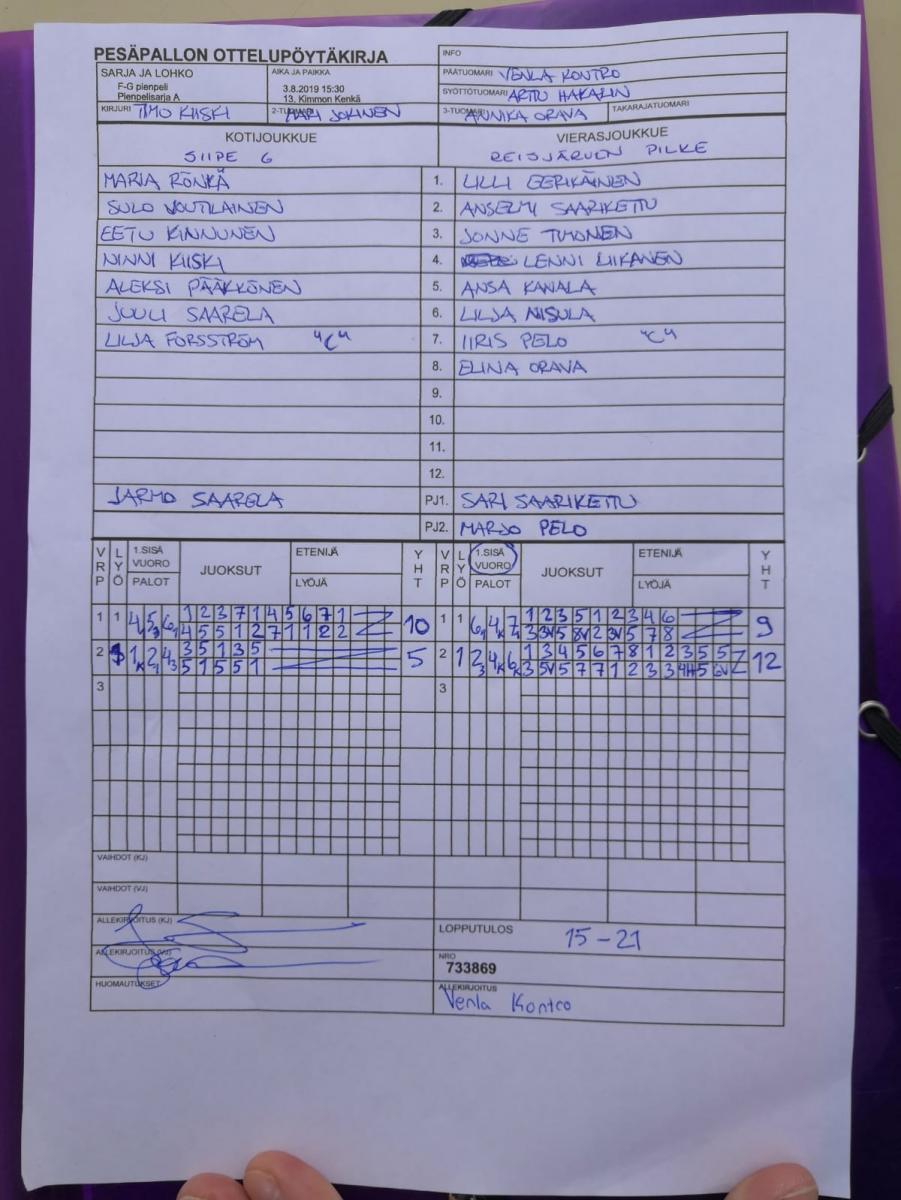 PESÄPALLON OTTELUPÖYTÄKIRJA
INFO
SARJA JA LOHKO
F-G pienpeli
Pienpelisarja A
AIKA JA PAIKKA
3.8.2019 15:30
13, Kimmon Kenkä
PÄÄTUOMARI VENLA KONTRO
SYÖTTÖTUOMARI ARTTU HAKALIN
KIRJURI TIMO KIISKI
2-TUOMARI JOKINEN
3-TUOMARI ANNIKA ORAVA
TAKARAJATUOMARI
KOTIJOUKKUE
SIIPE 6
VIERASJOUKKUE
REISJÄRVEN PILKE
MARIA RÖNKÄ 1. LILLI EERIKÄINEN
SULO VOUTILAINEN 2. ANSELMI SAARIKETTU
EETU KINNUNEN 3. JONNE TIMONEN
NINNI KIISKI 4. LENNI LIIKANEN
ALEKSI PÄÄKKÖNEN 5. ANSA KANALA
JUULI SAARELA 6. LILJA NISULA
LILJA FORSSTRÖM "C" 7. IIRIS PELO "C"
8. ELINA ORAVA
9.
10.
11.
12.
JARMO SAARELA PJ1. SARI SAARIKETTU
PJ2. MARJO PELO
VRP LYÖ 1.SISÄ VUORO PALOT JUOKSUT ETENIJÄ LYÖJÄ YHT VRP LYÖ 1.SISÄ VUORO PALOT JUOKSUT ETENIJÄ LYÖJÄ YHT
1 1 1 2 3 7 1 4 5 6 7 1 10 1 1 1 2 3 5 1 2 3 4 6 9
4 5 5 1 2 7 1 1 2 2 3 3V 5 8V 2 3V 5 7 8
2 3 5 1 3 5 5 2 1 1 3 4 5 6 7 8 1 2 3 5 5 12
5 1 5 5 1 3 5V 5 7 7 1 2 3 3 4H 5 6V
3 3
VAIHDOT (KJ)
VAIHDOT (VJ)
ALLEKIRJOITUS (KJ)
LOPPUTULOS 15-21
ALLEKIRJOITUS (VJ)
NRO
733869
HUOMAUTUKSET
ALLEKIRJOITUS
Venla Kontro